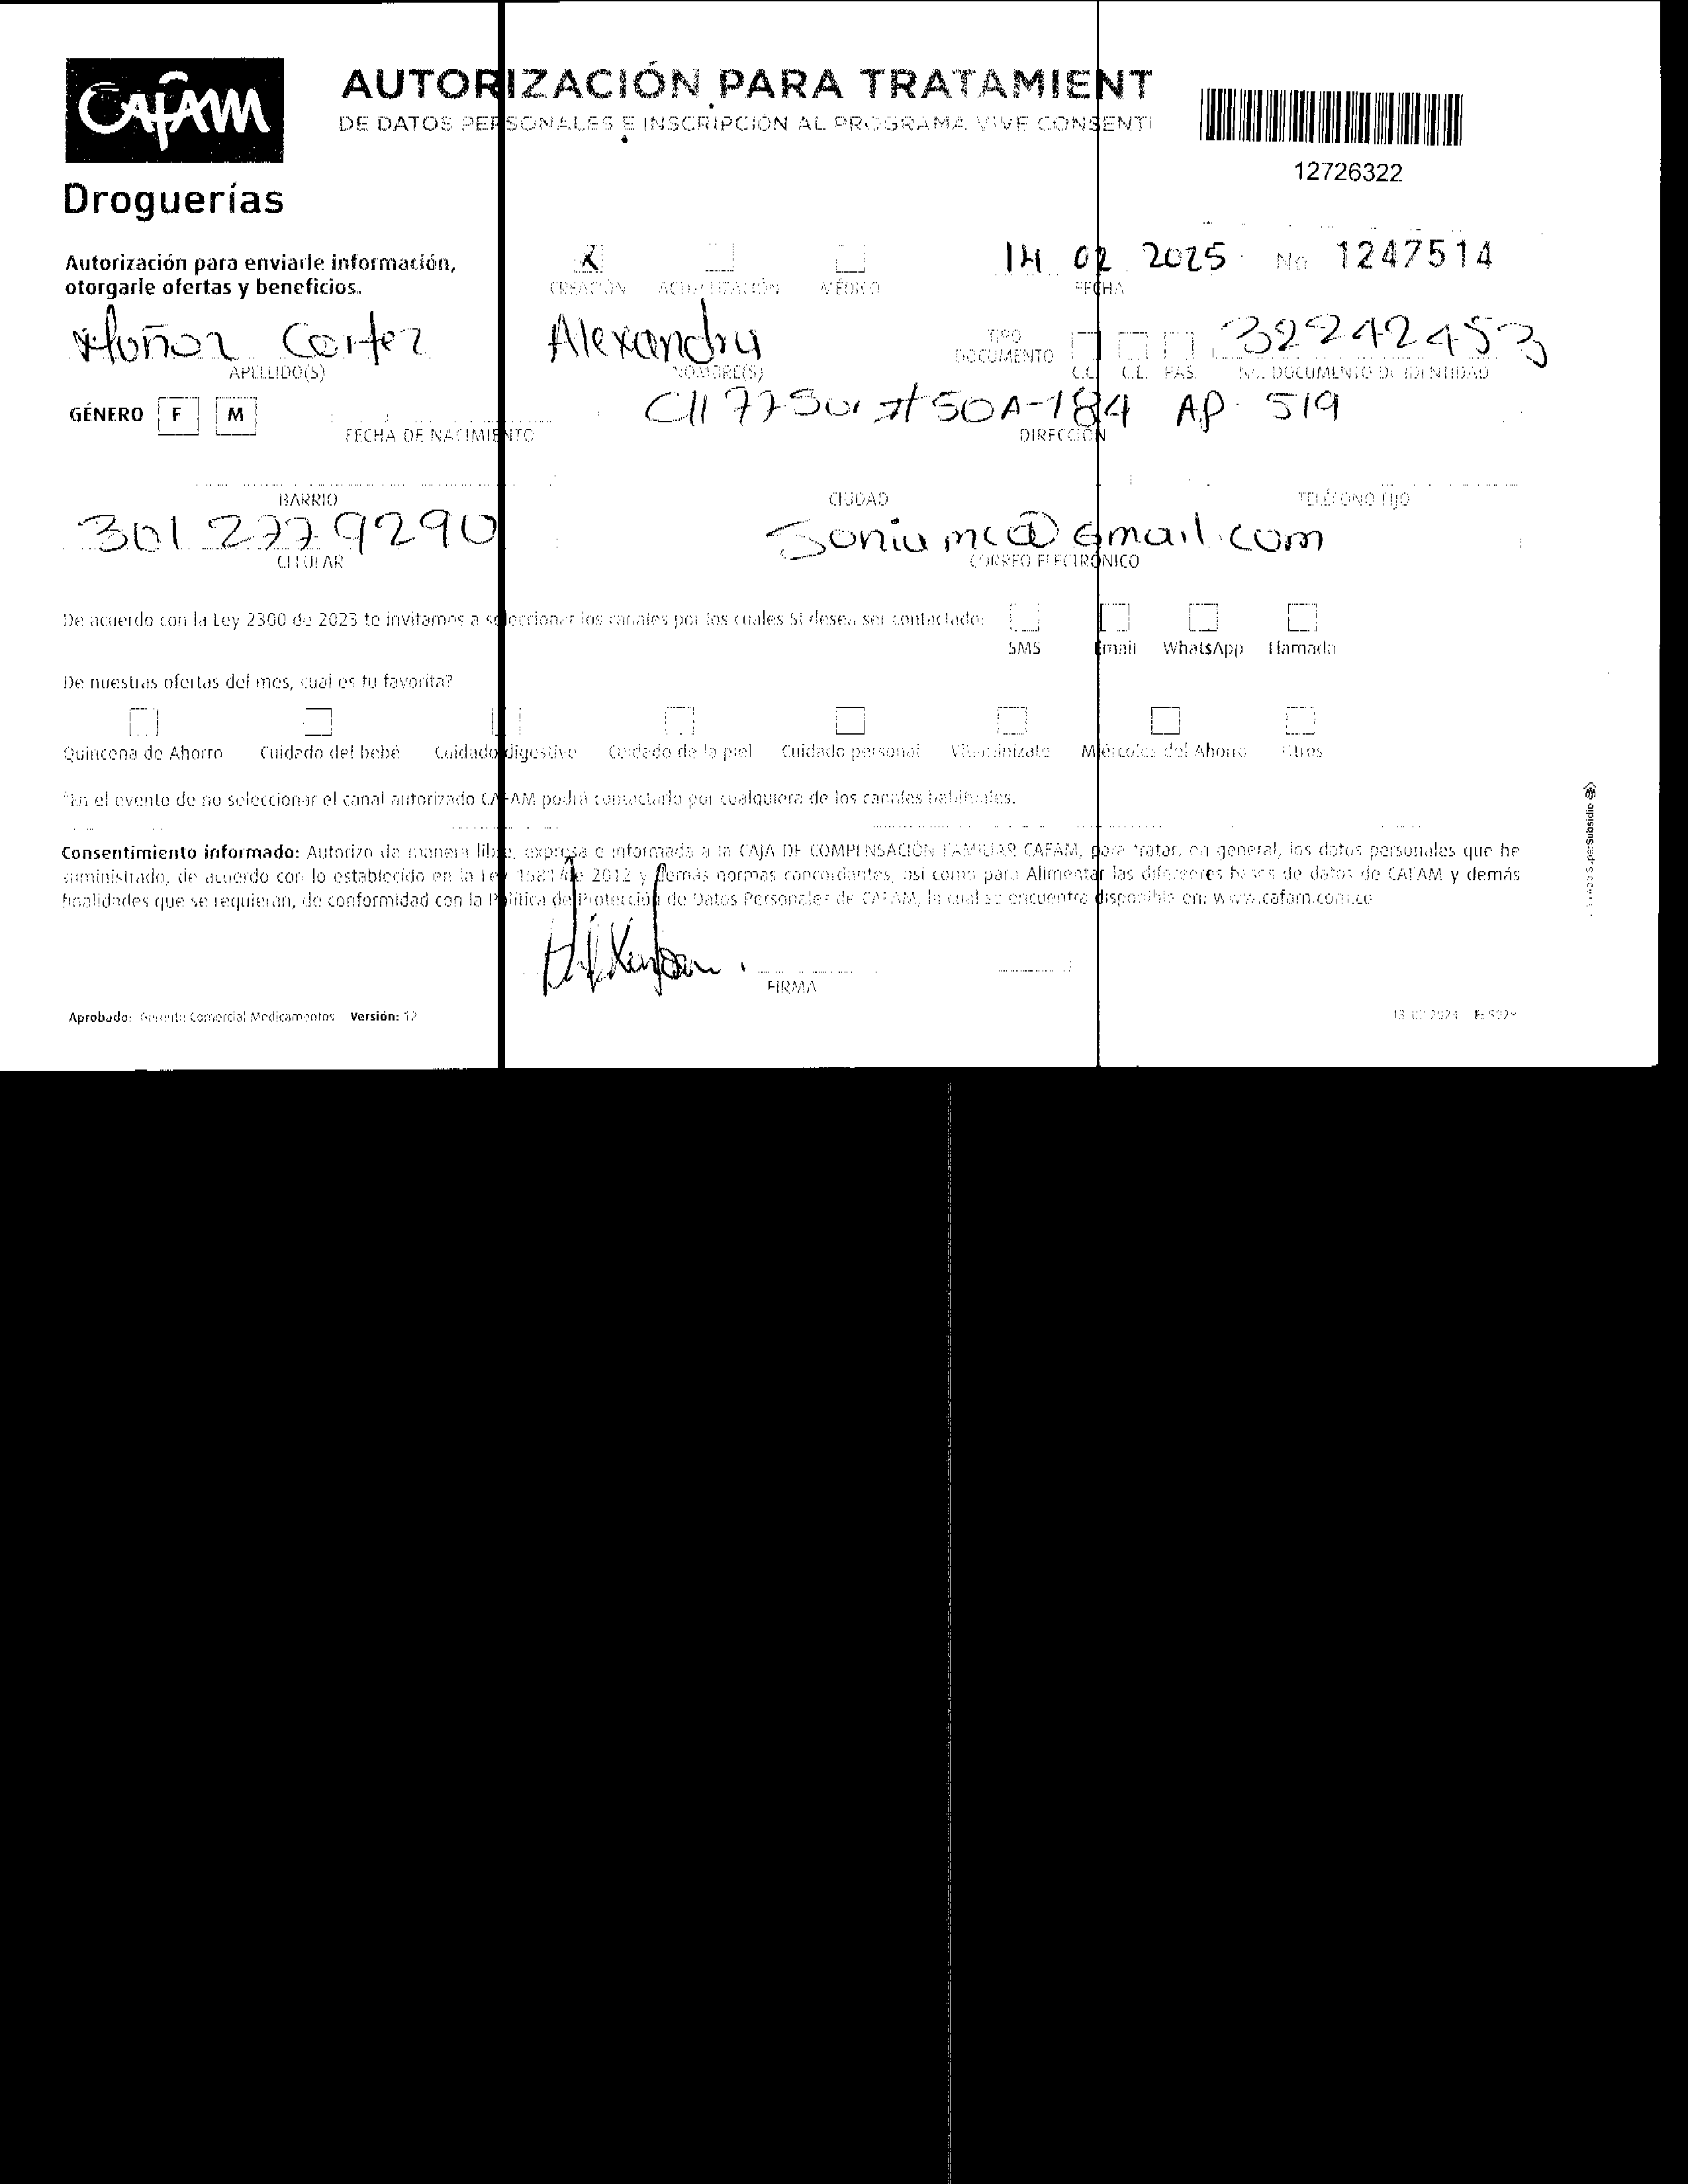 CAFAM
Droguerías
AUTORIZACIÓN PARA TRATAMIENT
DE DATOS PERSONALES E INSCRIPCIÓN AL PROGRAMA VIVE CONSENTI
12726322
Autorización para enviarle información,
otorgarle ofertas y beneficios.
X
CREACIÓN ACTUALIZACIÓN MÉDICO
14 02 2025 No 1247514
FECHA
Muñoz Cortez Alexandra
APELLIDO(S) NOMBRE(S)
TIPO DOCUMENTO C.C. C.E. PAS. 32242453
No. DOCUMENTO DE IDENTIDAD
GÉNERO F M
FECHA DE NACIMIENTO
Cll 77 Sur # 50A-184 AP. 519
DIRECCIÓN
BARRIO CIUDAD TELÉFONO FIJO
301 2779290 Soniamc@Gmail.com
CELULAR CORREO ELECTRÓNICO
De acuerdo con la Ley 2300 de 2023 te invitamos a seleccionar los canales por los cuales SI desea ser contactado:
SMS Email WhatsApp Llamada
De nuestras ofertas del mes, cual es tu favorita?
Quincena de Ahorro Cuidado del bebé Cuidado digestivo Cuidado de la piel Cuidado personal Vitaminízate Miércoles del Ahorro Otros
*En el evento de no seleccionar el canal autorizado CAFAM podrá contactarlo por cualquiera de los canales habituales.
Consentimiento informado: Autorizo de manera libre, expresa e informada a la CAJA DE COMPENSACIÓN FAMILIAR CAFAM, para tratar, en general, los datos personales que he
suministrado, de acuerdo con lo establecido en la Ley 1581 de 2012 y demás normas concordantes, así como para Alimentar las diferentes bases de datos de CAFAM y demás
finalidades que se requieran, de conformidad con la Política de Protección de Datos Personales de CAFAM, la cual se encuentra disponible en: www.cafam.com.co
FIRMA
Aprobado: Gerente Comercial Medicamentos Versión: 12
SuperSubsidio